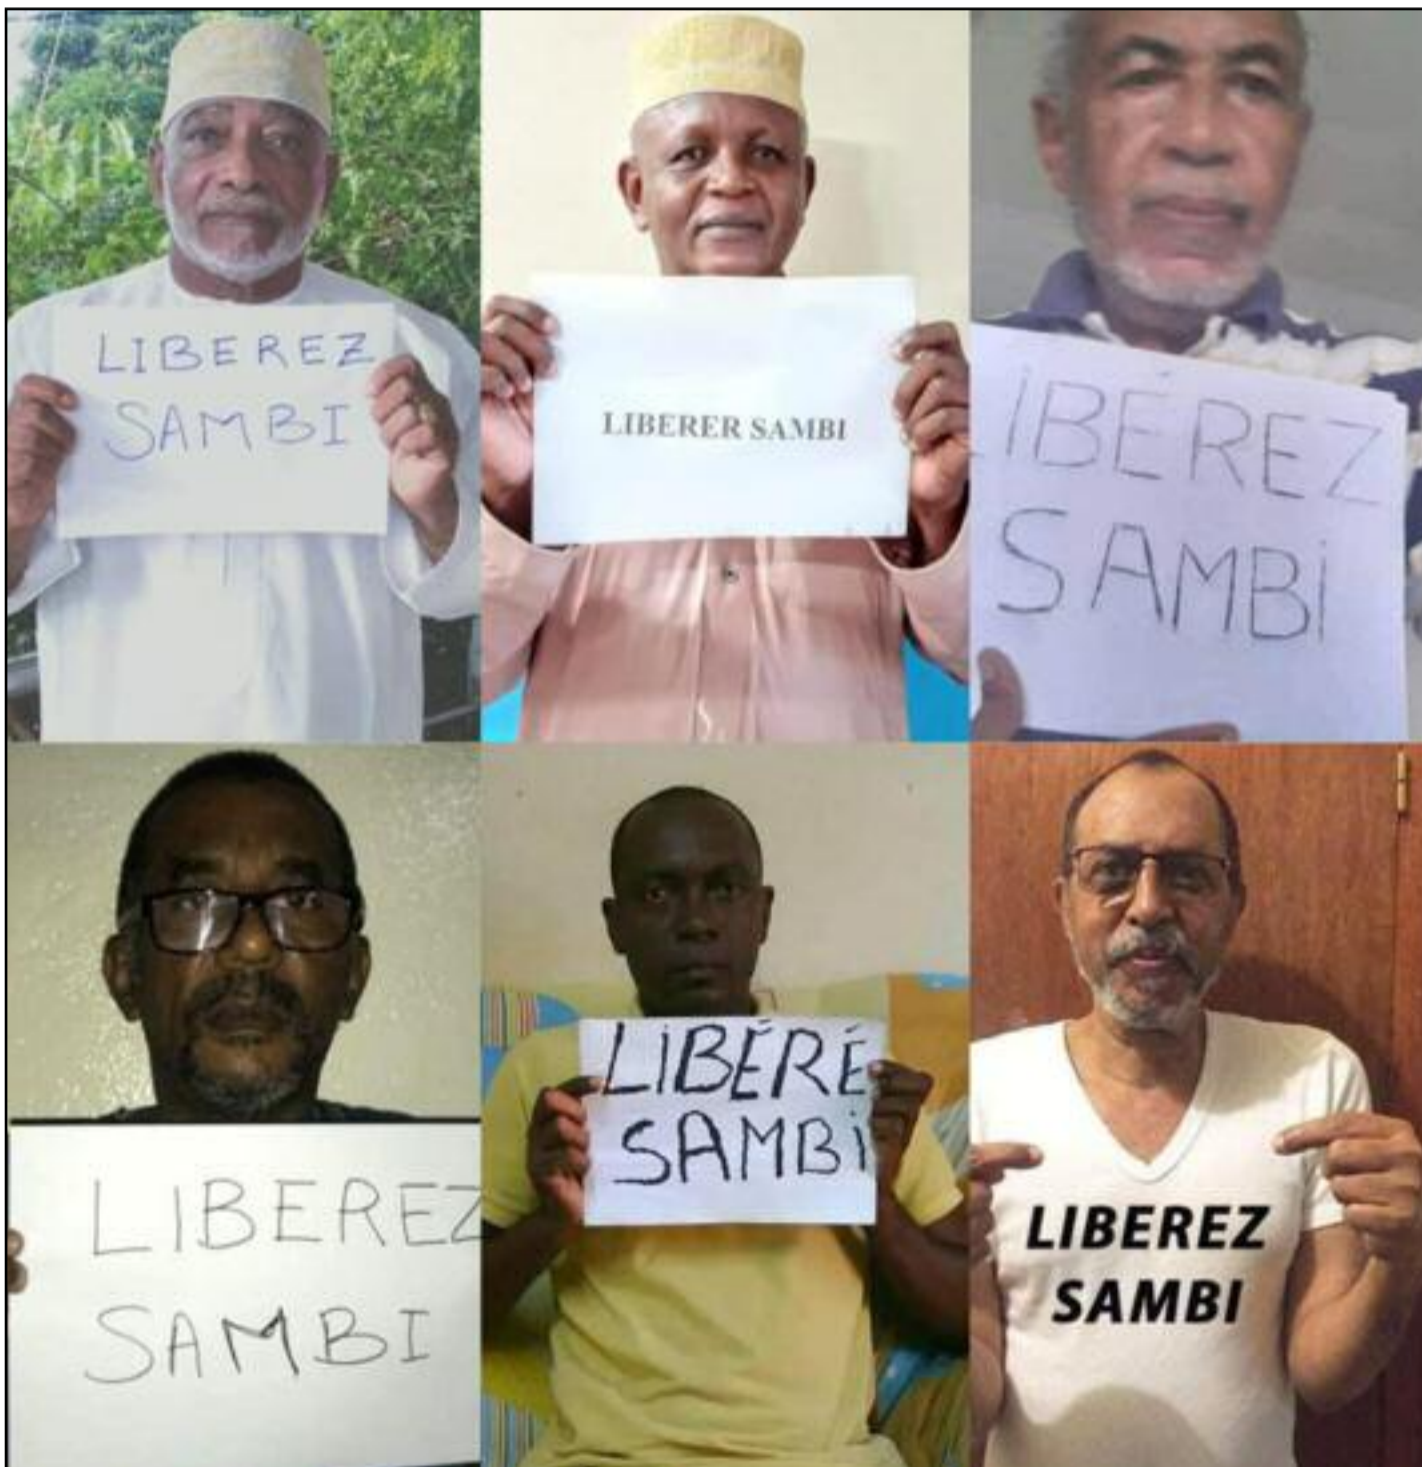 LIBEREZ
SAMBI
LIBERER SAMBI
IBÉREZ
SAMBi
LIBEREZ
SAMBI
LiBÉRÉ
SAMBi
LIBEREZ
SAMBI